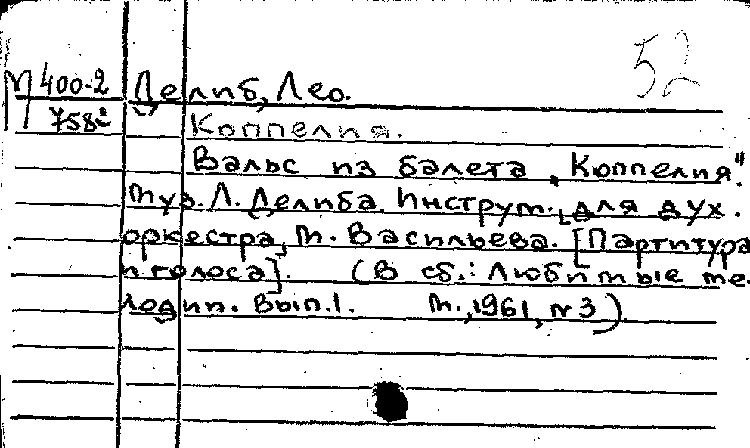 52
М 400-2 Делиб, Лео.
758² Коппелия.
Вальс из балета „Коппелия".
Муз. Л. Делиба. Инструм. [для дух.
оркестра, М. Васильева. [Партитура
и голоса]. (В сб.: Любимые ме-
лодии. Вып. 1. М., 1961, №3)